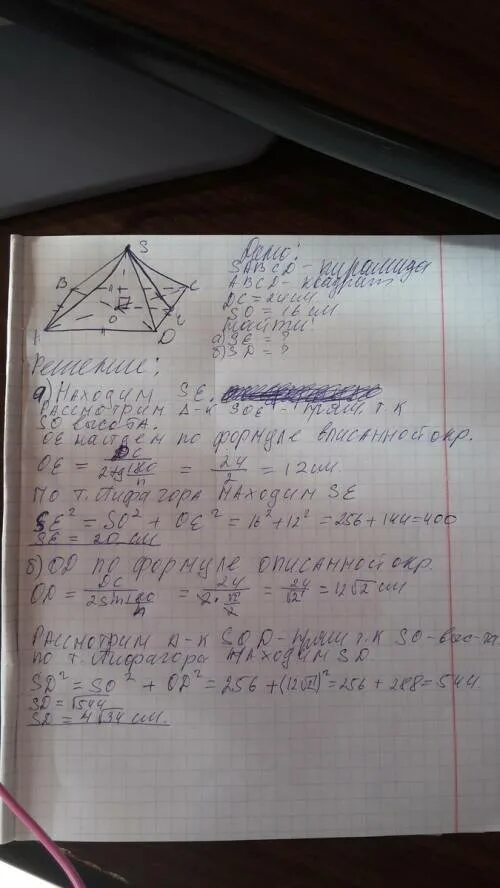 S
B
C
A
D
O
Дано:
SABCD - пирамида
ABCD - квадрат
DC = 24 см
SO = 16 см
Найти:
а) SE = ?
б) SD = ?
Решение:
а) Находим SE.
Рассмотрим Δ-к SOE - прям. т.к
SO высота.
OE найдем по формуле вписанной окр.
OE = DC / 2tg 180/n = 24/2 = 12 см.
По т. Пифагора находим SE
SE² = SO² + OE² = 16² + 12² = 256 + 144 = 400
SE = 20 см
б) OD по формуле описанной окр.
OD = DC / 2sin 180/n = 24 / 2·√2/2 = 24/√2 = 12√2 см
Рассмотрим Δ-к SOD - прям т.к SO - выс-та
по т. Пифагора находим SD
SD² = SO² + OD² = 256 + (12√2)² = 256 + 288 = 544.
SD = √544
SD = 4√34 см.